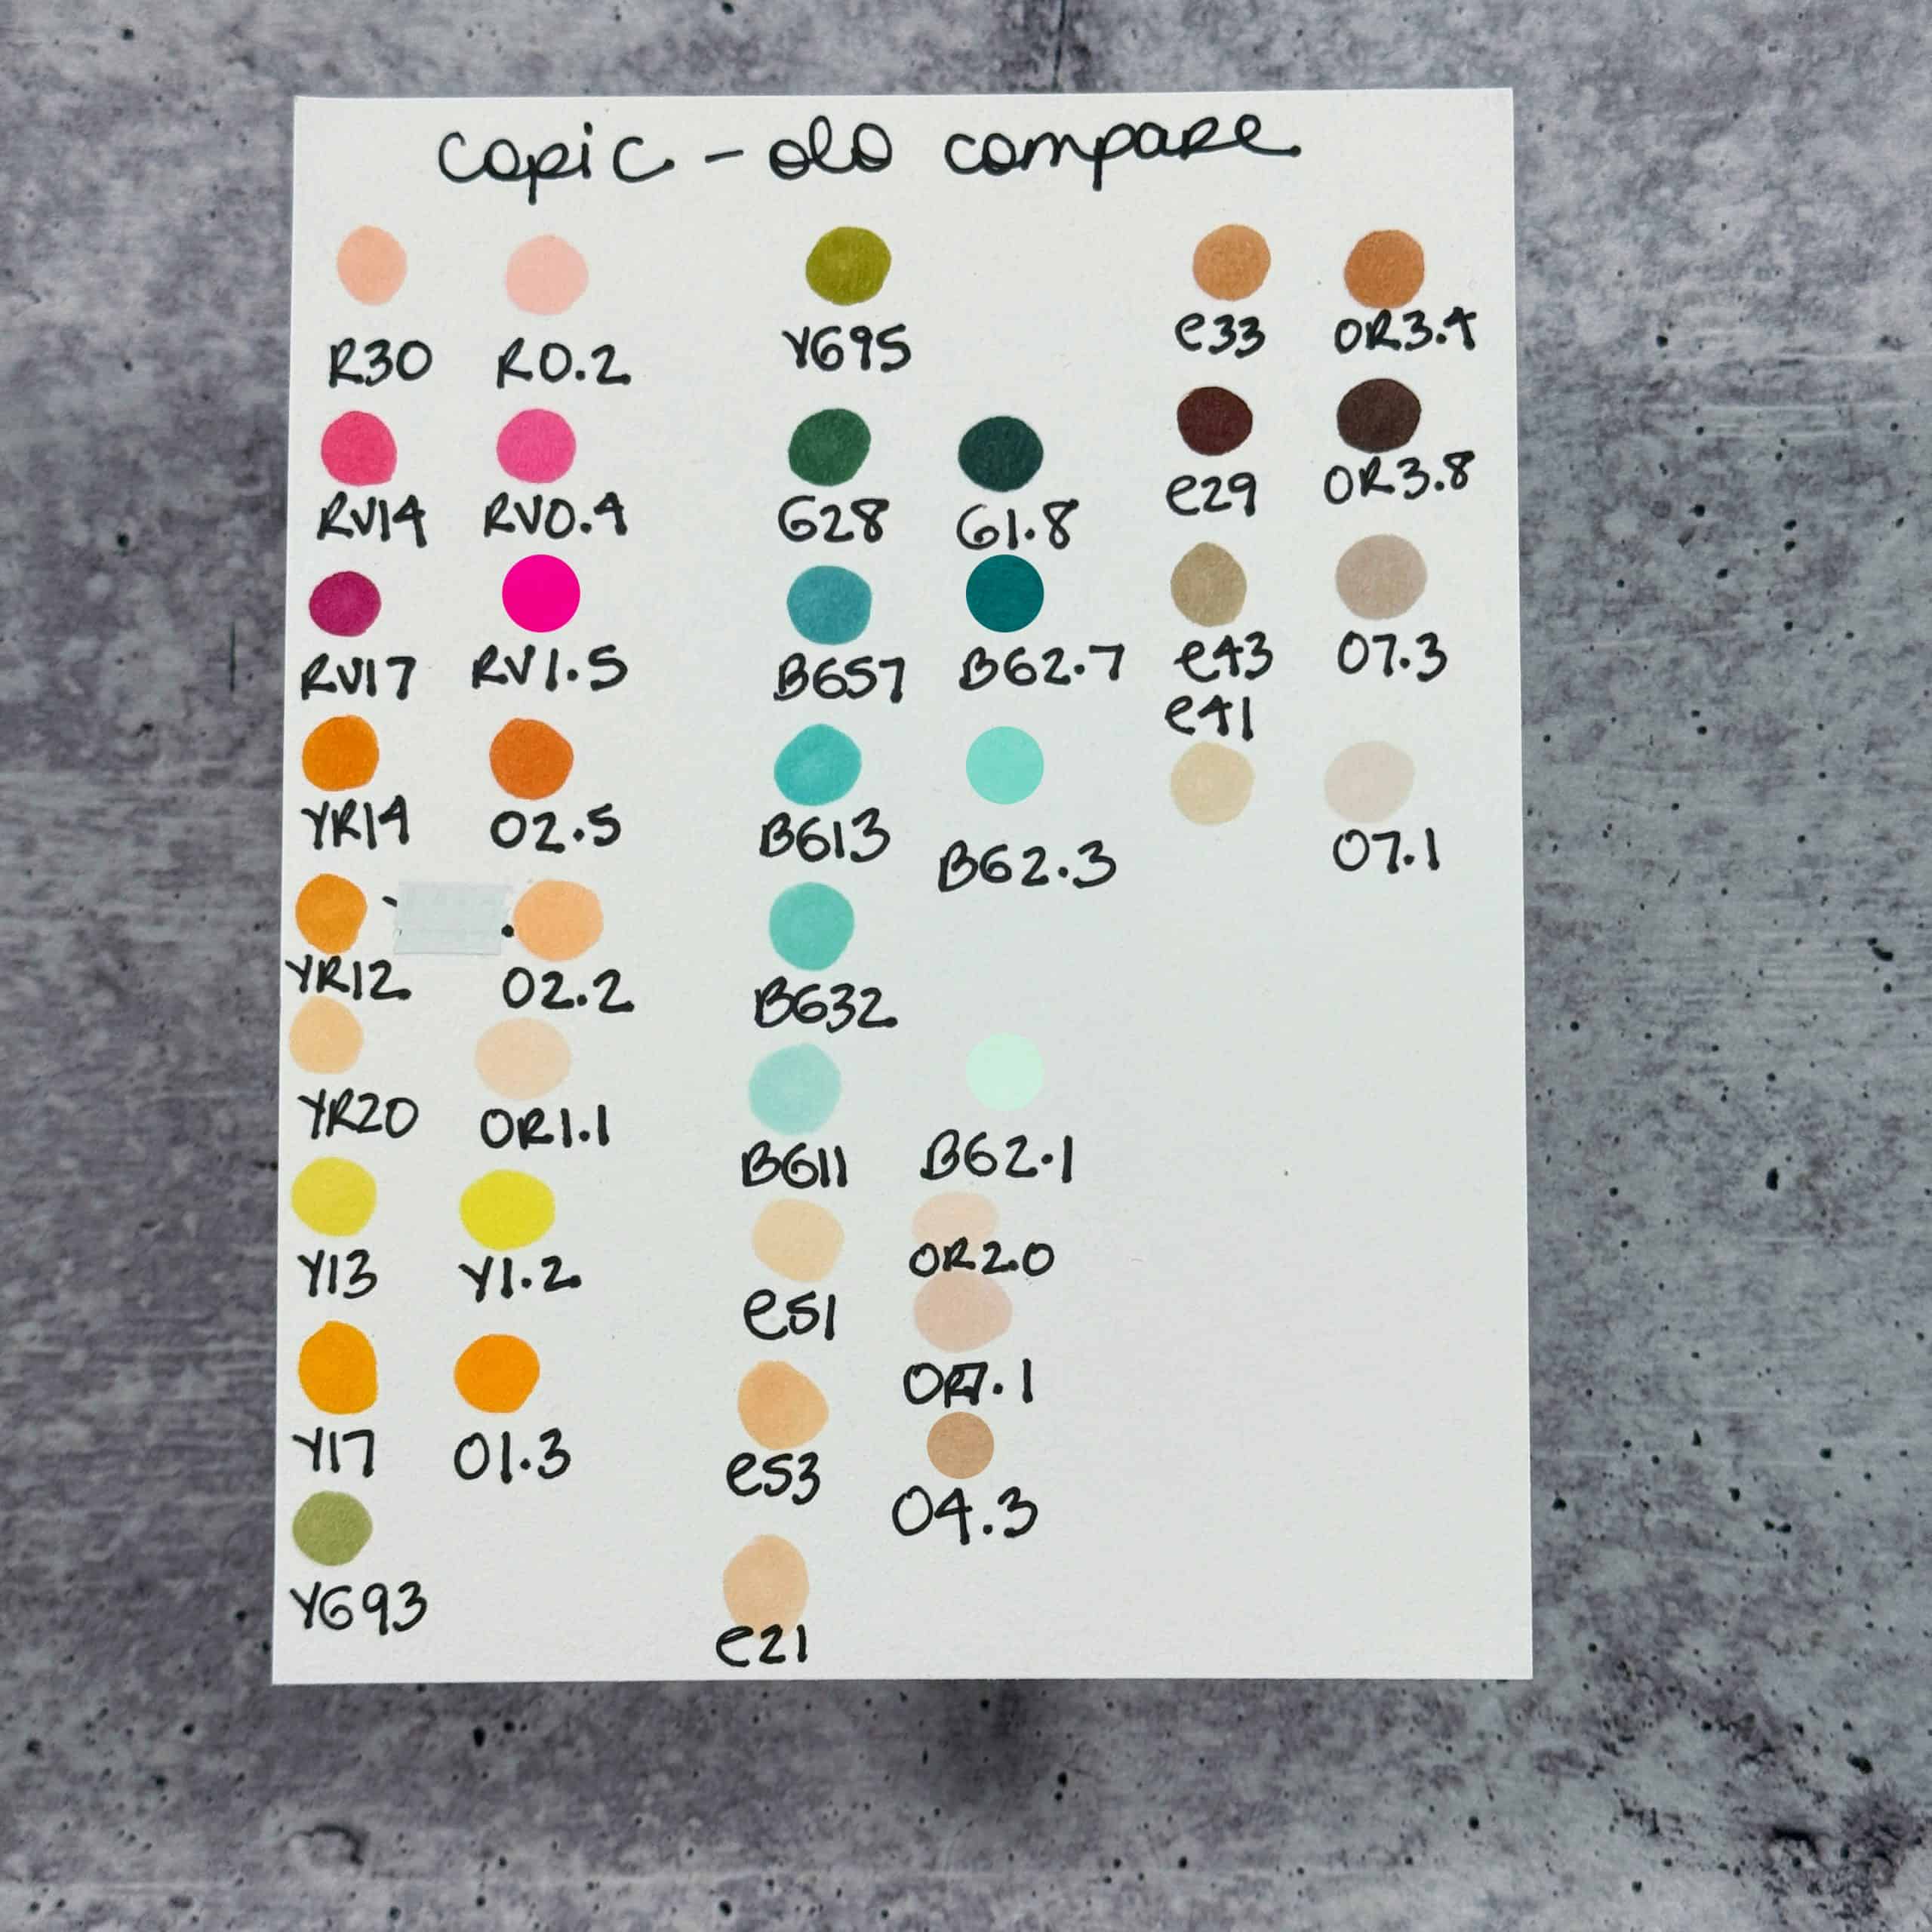 copic - olo compare
R30 R0.2
RV14 RV0.4
RV17 RV1.5
YR14 O2.5
YR12 O2.2
YR20 OR1.1
Y13 Y1.2
Y17 O1.3
YG93
YG95
G28 G1.8
BG57 BG2.7
BG13 BG2.3
BG32
BG11 BG2.1
OR2.0
e51
OR7.1
e53
O4.3
e21
e33 OR3.4
e29 OR3.8
e43 O7.3
e41
O7.1